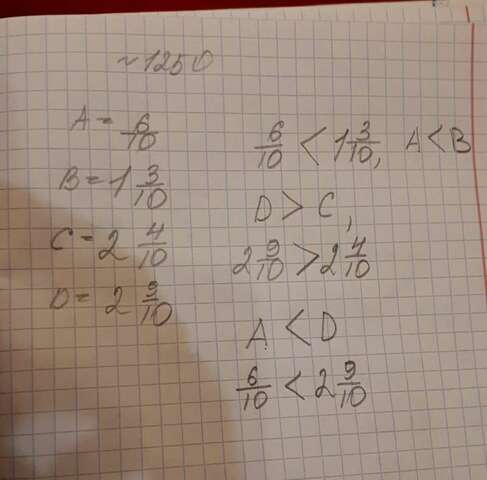 ~1250
A = 6/10
B = 1 3/10
C = 2 4/10
D = 2 9/10
6/10 < 1 3/10, A < B
D > C,
2 9/10 > 2 4/10
A < D
6/10 < 2 9/10